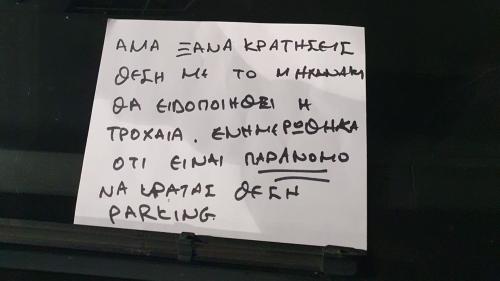 ΑΜΑ ΞΑΝΑ ΚΡΑΤΗΣΕΙΣ
ΘΕΣΗ ΜΕ ΤΟ ΜΗΧΑΝΑΚΙ
ΘΑ ΕΙΔΟΠΟΙΗΘΕΙ Η
ΤΡΟΧΑΙΑ. ΕΝΗΜΕΡΩΘΗΚΑ
ΟΤΙ ΕΙΝΑΙ ΠΑΡΑΝΟΜΟ
ΝΑ ΚΡΑΤΑΣ ΘΕΣΗ
PARKING